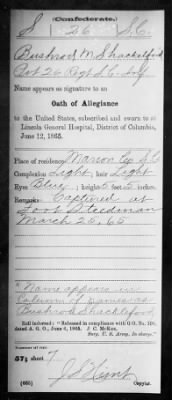 (Confederate.)
S 26 S.C.
Bushrod M Shackelford
Pvt 26 Regt S.C. Inf
Name appears as signature to an
Oath of Allegiance
to the United States, subscribed and sworn to at
Lincoln General Hospital, District of Columbia,
June 12, 1865.
Place of residence Marion Co S C
Complexion Light; hair Light
Eyes Blue; height 5 feet 5 inches.
Remarks: Captured at
Fort Steedman
March 25, 65
*Name appears in
Column of names as
Bushrod Shackleford
Roll indorsed: "Released in compliance with G.O. No. 109,
dated A. G. O., June 6, 1865. J. C. McKee,
Surg. U. S. Army, In charge."
Number of roll:
57; sheet 7
J S Hunt
Copyist.